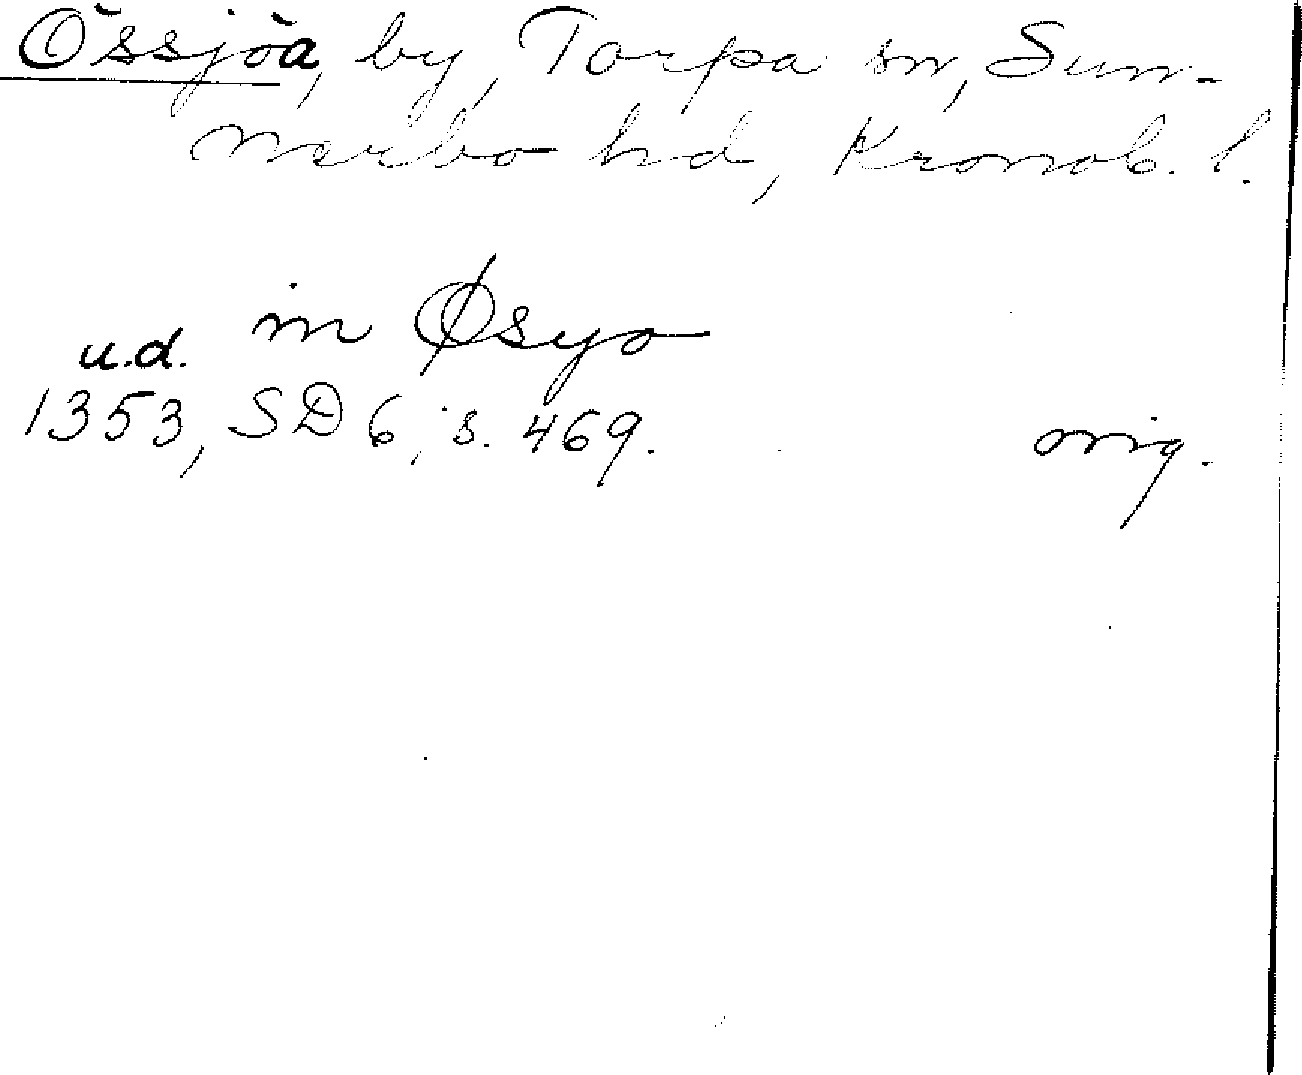 Össjöa, by, Torpa sn, Sun-
nerbo hd, Kronob. l.
in Øsyo
u.d.
1353, SD 6, s. 469. orig.